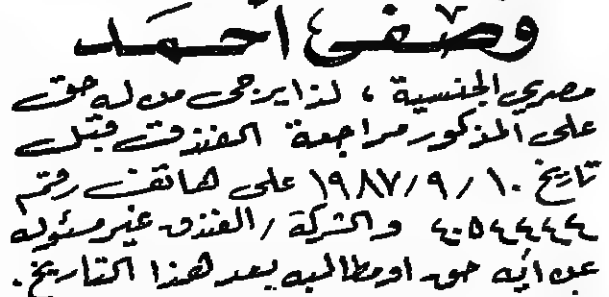 وصفى أحمد
مصري الجنسية ، لذا يرجى من له حق
على المذكور مراجعة الفندق قبل
تاريخ ١٩٨٧/٩/١٠ على هاتف رقم
٤٠٥٤٤٤٤ والشركة / الفندق غير مسئوله
عن أيه حق او مطالبه بعد هذا التاريخ .